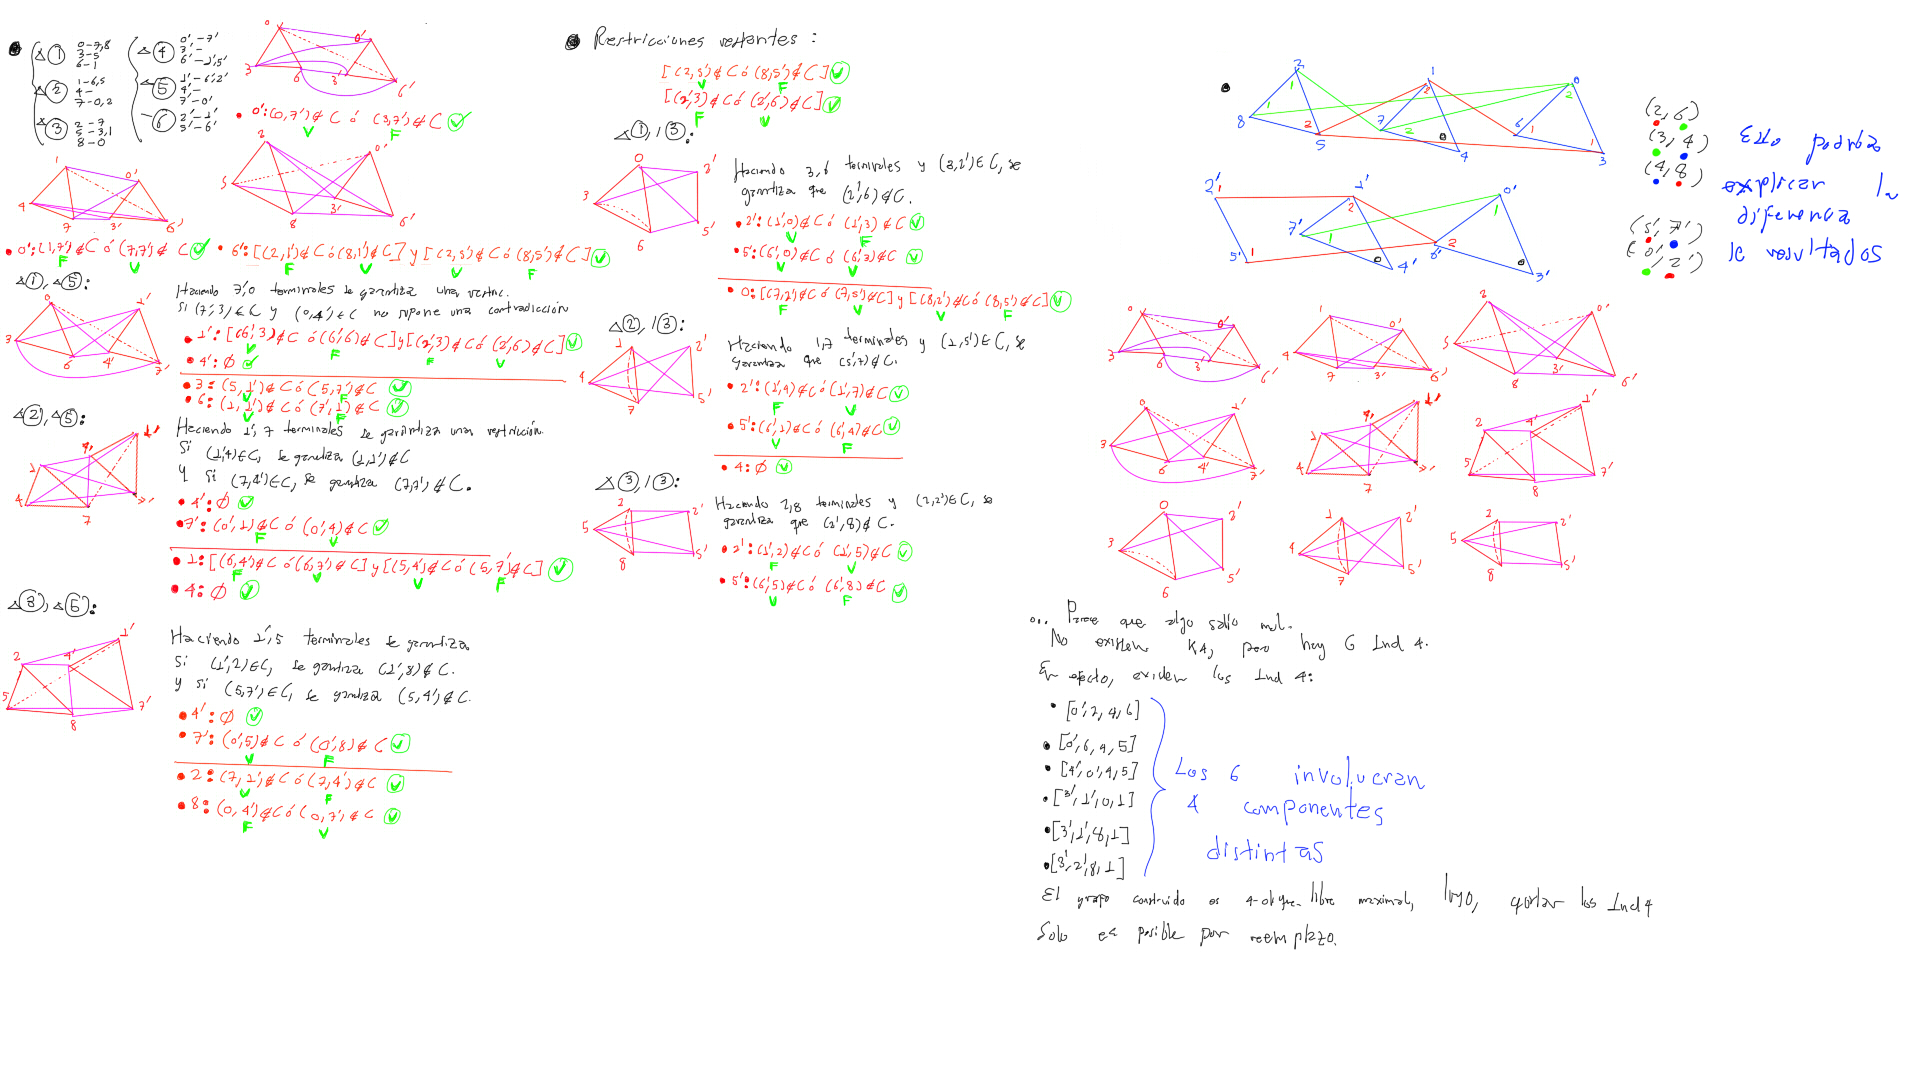 △① 0-7,8
3-5
6-1
△② 1-6,5
4-
7-0,2
△③ 2-7
5-3,1
8-0
△④ 0'-7'
3'-
6'-1',5'
△⑤ 1'-6',2'
4'-
7'-0'
⑥ 2'-1'
5'-6'
• 0':(0,7')∉C ó (3,7')∉C
V F
• 0':(1,7')∉C ó (7,7')∉C
F V
• 6':[(2,1')∉C ó (8,1')∉C] y [(2,5')∉C ó (8,5')∉C]
F V V F
△①,△⑤:
Haciendo 7',0 terminales se garantiza una restric.
Si (7',3)∈C y (0,4')∈C no supone una contradicción
• 1':[(6',3)∉C ó (6',6)∉C] y [(2',3)∉C ó (2',6)∉C]
V F F V
• 4':∅
• 3:(5,1')∉C ó (5,7')∉C
V F
• 6:(1,1')∉C ó (7',1)∉C
V F
△②,△⑤:
Haciendo 1',7 terminales se garantiza una restricción.
Si (1',4)∈C, se garantiza (1,1')∉C
Y si (7,4')∈C, se garantiza (7,7')∉C.
• 4':∅
• 7':(0',1)∉C ó (0',4)∉C
F V
• 1:[(6,4')∉C ó (6,7')∉C] y [(5,4')∉C ó (5,7')∉C]
F V V F
• 4:∅
△③,△⑤:
Haciendo 1',5 terminales se garantiza
Si (1',2)∈C, se garantiza (1',8)∉C.
Y si (5,7')∈C, se garantiza (5,4')∉C.
• 4':∅
• 7':(0',5)∉C ó (0',8)∉C
V F
• 2:(7,1')∉C ó (7,4')∉C
V F
• 8:(0,4')∉C ó (0,7')∉C
F V
Restricciones restantes:
[(2,5')∉C ó (8,5')∉C]
V F
[(2',3)∉C ó (2',6)∉C]
F V
△①,/③:
Haciendo 3,6 terminales y (3,2')∈C, se
garantiza que (2',6)∉C.
• 2':(1',0)∉C ó (1',3)∉C
V F
• 5':(6',0)∉C ó (6',3)∉C
V V
• 0:[(7,2')∉C ó (7,5')∉C] y [(8,2')∉C ó (8,5')∉C]
F V V F
△②,/③:
Haciendo 1,7 terminales y (1,5')∈C, se
garantiza que (5',7)∉C.
• 2':(1',4)∉C ó (1',7)∉C
F V
• 5':(6',1)∉C ó (6',4)∉C
V F
• 4:∅
△③,/③:
Haciendo 2,8 terminales y (2,2')∈C, se
garantiza que (2',8)∉C.
• 2':(1',2)∉C ó (1',5)∉C
F V
• 5':(6',5)∉C ó (6',8)∉C
V F
(2,6)
(3,4)
(4,8)
(5',7')
Esto podría
explicar la
diferencia
de resultados
... Parece que algo salió mal.
No existen K4, pero hay 6 Ind 4.
En efecto, existen los Ind 4:
• [0',2,4,6]
• [0',6,4,5]
• [4',0',4,5]
• [3',1',0,1]
• [3',1',8,1]
• [3',2',8,1]
Los 6 involucran
4 componentes
distintas
El grafo construido es 4-clique-libre maximal, luego, quitar los Ind 4
Solo es posible por reemplazo.